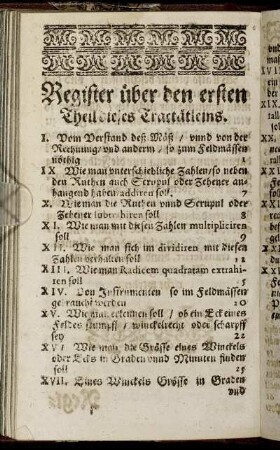 Register über den ersten
Theil dieses Tractätleins.
I. Vom Verstand deß Mäß / vnnd von der
Rechnung / vnd anderm / so zum Feldmässen
nöthig 1
IX. Wie man vnterschiedliche Zahlen / so neben
den Ruthen auch Scrupul oder Zehener an-
hangend haben / addiren soll. 7
X. Wie man die Ruthen vnnd Scrupul oder
Zehener subtrahiren soll 8
XI. Wie man mit diesen Zahlen multipliciren
soll 9
XII. Wie man sich im dividiren mit diesen
Zahlen verhalten soll 11
XIII. Wie man Radicem quadratam extrahi-
ren soll 15
XIV. Von Instrumenten so im Feldmässen
gebraucht werden 20
XV. Wie man erkennen soll / ob ein Eck eines
Feldes stumpff / winckelrecht oder scharpff
sey 22
XVI. Wie man die Grösse eines Winckels
oder Ecks in Graden vnnd Minuten finden
soll 25
XVII. Eines Winckels Grösse in Graden
vnd